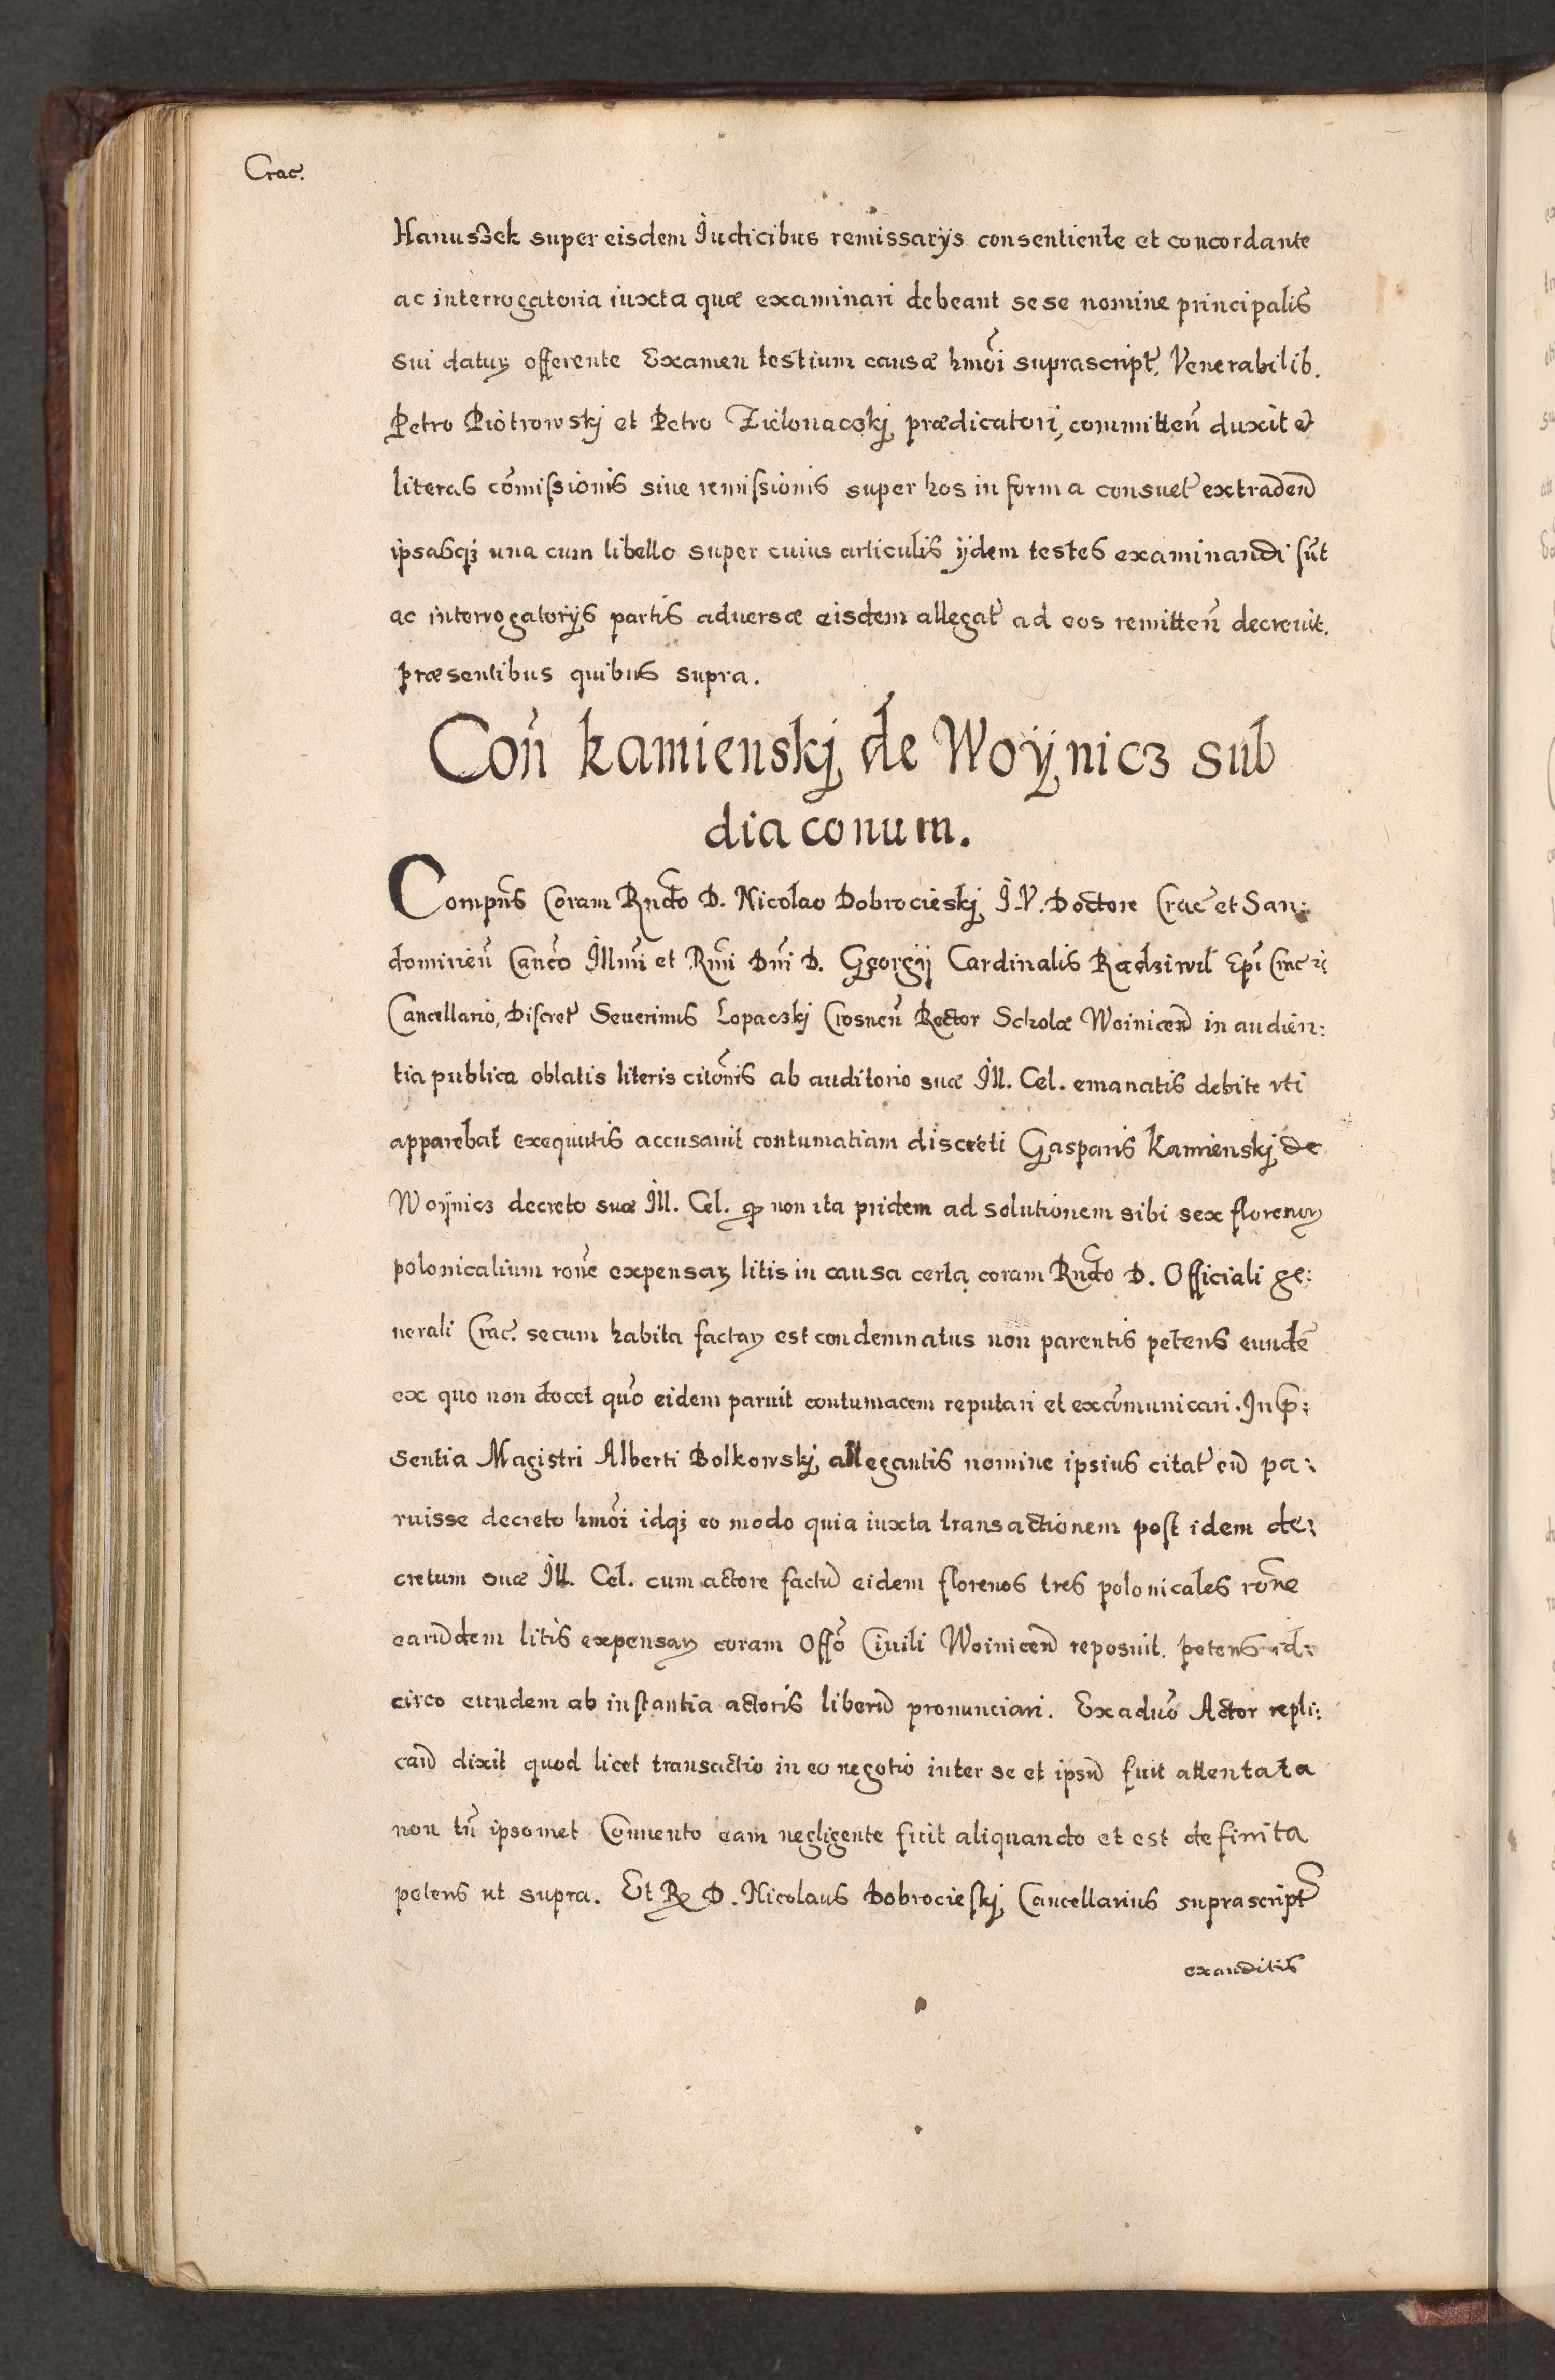 Crac.
Hanuszek super eisdem Iudicibus remissarijs consentiente et concordante
ac interrogatoria iuxta quæ examinari debeant sese nomine principalis
sui datur offerente Examen testium causæ hmōi suprascript. Venerabilib.
Petro Piotrowskj et Petro Zielonacskj prædicatori, committeñ duxit et
literas cōmissionis siue remissionis super hos in forma consuet extradend
ipsasqȝ una cum libello super cuius articulis ijdem testes examinandi sūt
ac interrogatorijs partis aduersæ eisdem allegat ad eos remitteñ decreuit.
præsentibus quibus supra.
Coñ kamienskj de Woÿnicz sub
diaconum.
Compñs Coram Rndo D. Nicolao Dobrocieskj I.V. Doctore Crac et San:
domineñ Canco Illmi et Rmi Dni D. Georgij Cardinalis Radziwil Epi Crac
Cancellario, Discret Seuerinus Lopaczkj Crosneñ Rector Scholæ Woinicen in audien:
tia publica oblatis literis citōnis ab auditorio suæ Ill. Cel. emanatis debite vti
apparebat exequutis accusauit contumatiam discreti Gasparis Kamienskj de
Woijnicz decreto suæ Ill. Cel. qꝫ non ita pridem ad solutionem sibi sex florenoꝝ
polonicalium rōne expensaꝝ litis in causa certa coram Rndo D. Officiali ge:
nerali Crac. secum habita factaꝝ est condemnatus non parentis petens eundē
ex quo non docet quō eidem paruit contumacem reputari et excōmunicari. In p̄:
sentia Magistri Alberti Bolkowskj allegantis nomine ipsius citat eū pa:
ruisse decreto hmōi idqȝ eo modo quia iuxta transactionem post idem de:
cretum suæ Ill. Cel. cum actore factū eidem florenos tres polonicales rōne
earūdem litis expensaꝝ coram Offō Ciuili Woinicen reposuit. petens id:
circo eundem ab instantia actoris liberū pronunciari. Ex aduō Actor repli:
cañ dixit quod licet transactio in eo negotio inter se et ipsū fuit attentata
non tñ ipsomet Conuento eam negligente fuit aliquando et est definita
petens ut supra. Et R D. Nicolaus Dobrocieskj Cancellarius suprascript
exauditis